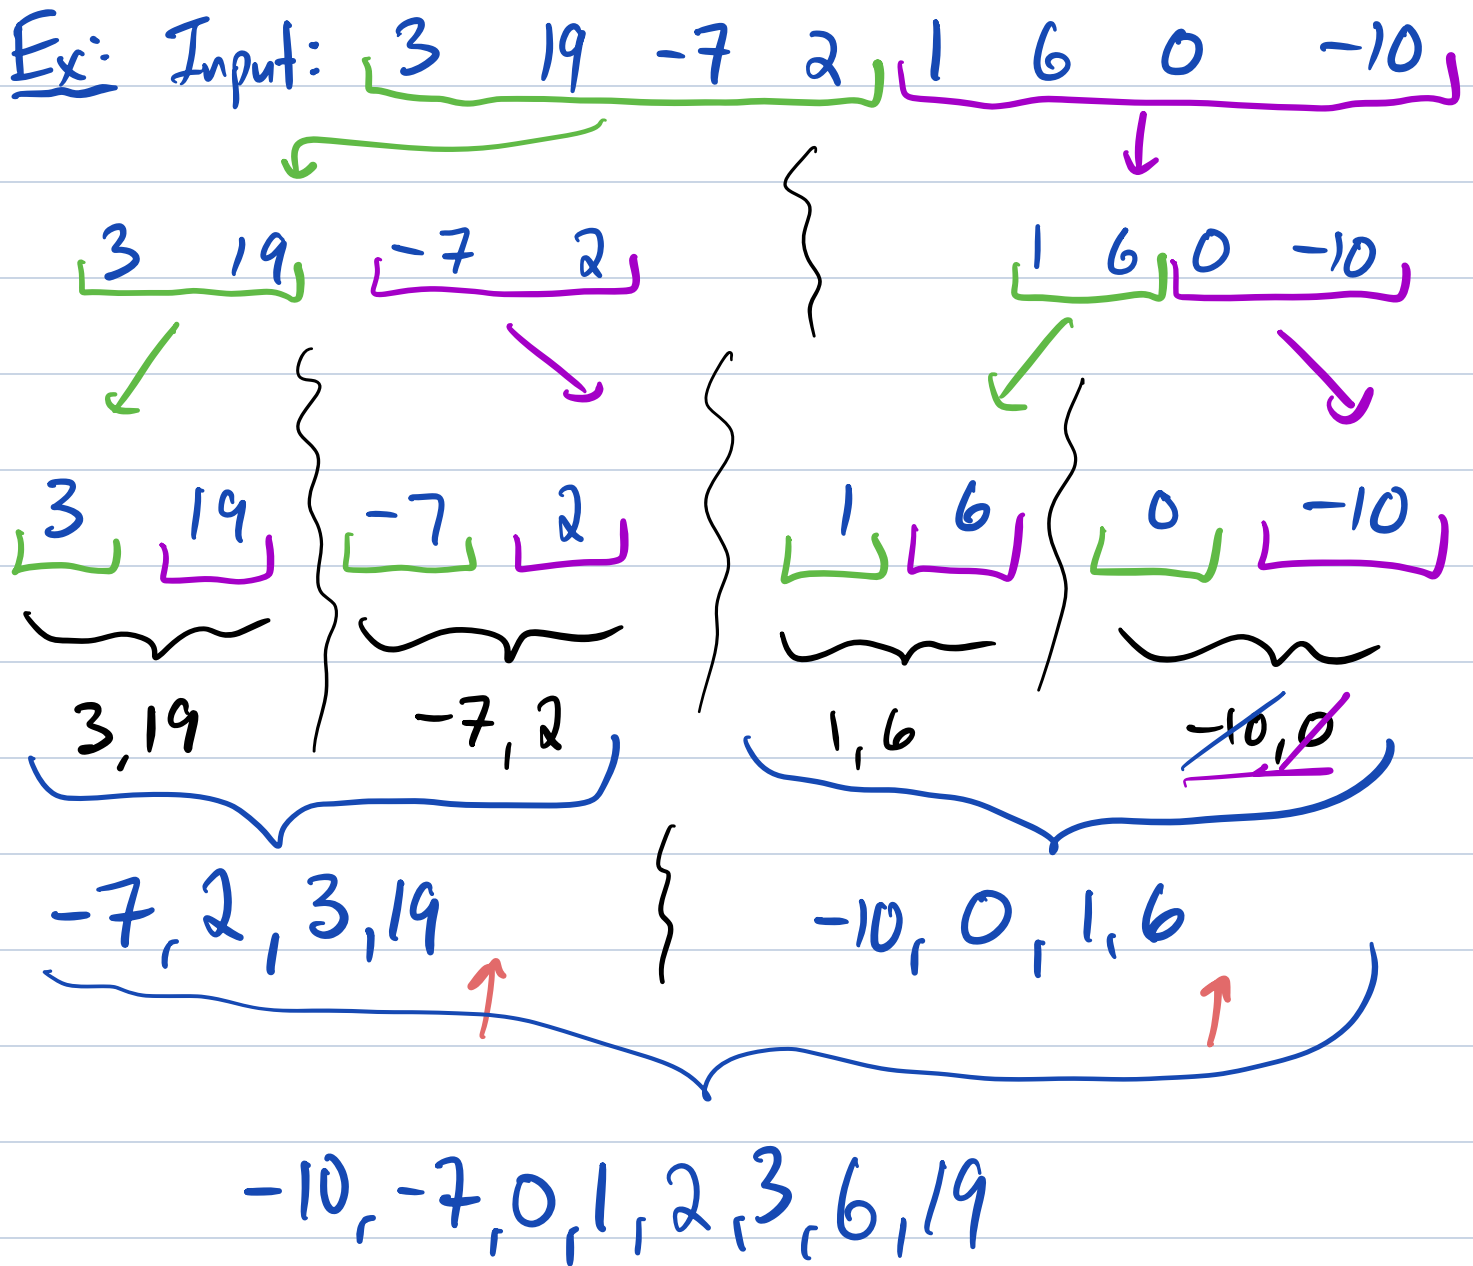 Ex: Input: 3 19 -7 2 1 6 0 -10
3 19 -7 2 1 6 0 -10
3 19 -7 2 1 6 0 -10
3,19 -7,2 1,6 -10,0
-7,2,3,19 -10,0,1,6
-10,-7,0,1,2,3,6,19